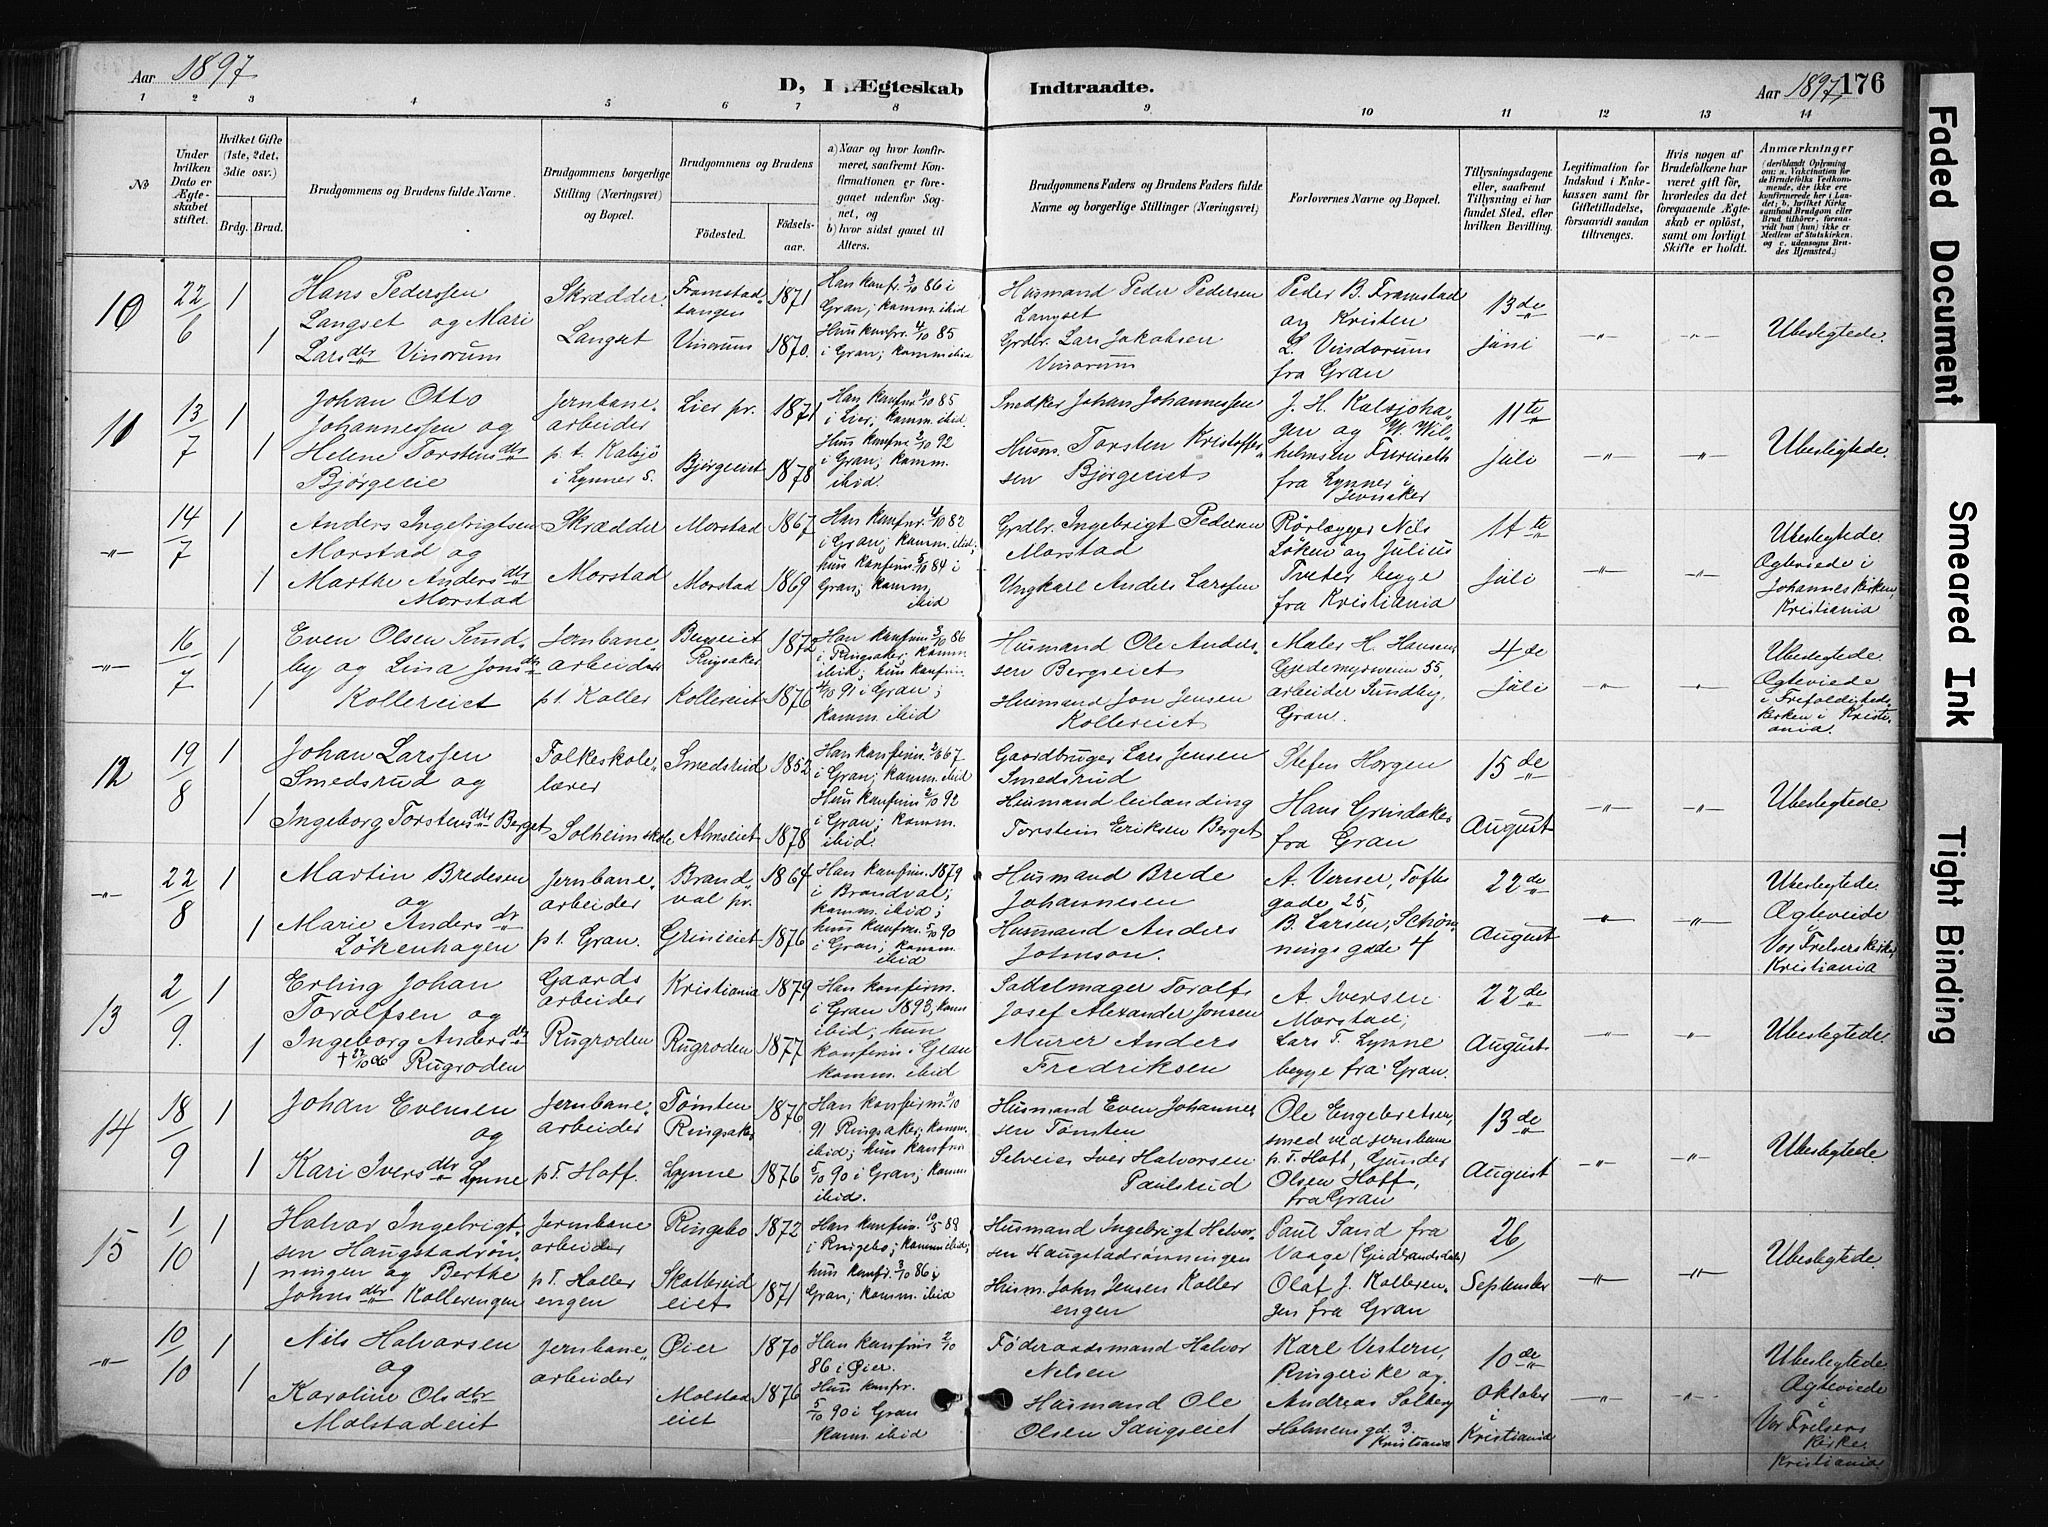 Aar 1897
D, I Ægteskab
Indtraadte.
Aar 1897, 176
1 2 3 4 5 6 7 8 9 10 11 12 13 14
No
Under
hvilken
Dato er
Ægte-
skabet
stiftet.
Hvilket Gifte
(1ste, 2det,
3die osv.)
Brdg. Brud.
Brudgommens og Brudens fulde Navne.
Brudgommens borgerlige
Stilling (Næringsvei)
og Bopæl.
Brudgommens og Brudens
Fødested.
Fødsels-
aar.
a) Naar og hvor konfir-
meret, saafremt Kon-
firmationen er fore-
gaaet udenfor Sog-
net, og
b) hvor sidst gaaet til
Alters.
Brudgommens Faders og Brudens Faders fulde
Navne og borgerlige Stillinger (Næringsvei)
Forlovernes Navne og Bopæl.
Tillysningsdagene
eller, saafremt
Tillysning ei har
fundet Sted, efter
hvilken Bevilling.
Legitimation for
Indskud i Enke-
kassen samt for
Giftetilladelse,
forsaavidt saadan
tiltrænges.
Hvis nogen af
Brudefolkene har
været gift før,
hvorledes da det
foregaaende Ægte-
skab er opløst,
samt om lovligt
Skifte er holdt.
Anmærkninger
(deriblandt Oplysning
om: a. Vaccination for
de Brudefolks Vedkom-
mende, der ikke ere
konfirmerede her i Lan-
det; b. hvilket Kirke
samfund Brudgom eller
Brud tilhører, forsaa-
vidt han (hun) ikke er
Medlem af Statskirken.
og c. udensogns Bru-
des Hjemsted.)
10
22/6
1
1
Hans Pederssen
Langset og Mari
Larsdtr Vinorum
Skrædder
Langset
Framstad-
tangen
Vinorum
1871
1870.
Han konfr. 3/10 86 i
Gran; komm. ibid
Hun konfr. 4/10 85
i Gran; komm ibid
Husmand Peder Pedersen
Langset
Grdbr. Lars Jakobsen
Vinorum
Peder B. Framstad
og Kristen
L. Vindorum
fra Gran
13de
juni
Ubeslegtede.
11
13/7
1
1
Johan Otto
Johannessen og
Helene Torstensdtr
Bjørgeeie
Jernbane-
arbeider
p. t. Kalsjø
i Lynner s.
Lier pr.
Bjørgeeiet
1871
1878
i Lier; komm. ibid.
Hun konfr. 2/10 92
i Gran; komm.
ibid.
Snedker Johan Johannessen
Husm. Torsten Kristoffer-
sen Bjørgeeiet
J. H. Kalsjoha-
gen og W. Wil-
helmsen Furuseth
fra Lynner i
Jevnaker
11te
juli
Ubeslegtede.
14/7
1
1
Anders Ingebrigtsen
Morstad og
Marthe Andersdtr
Morstad
Skrædder
Morstad
Morstad
Morstad
1867
1869
Han konfr. 4/10 82
i Gran; komm. ibid;
hun konfirm. 5/10 84 i
Gran; komm.
ibid
Grdbr. Ingebrigt Pedersen
Morstad
Ungkarl Anders Larssen
Rørlægger Nils
Løken og Julius
Tveter begge
fra Kristiania
11te
juli
Ubeslegtede.
Ægteviede i
Johannes kirken,
Kristiania
16/7
1
1
Even Olsen Sund-
by og Lina Jonsdtr
Kollereiet
Jernbane-
arbeider
pt. Koller
Bergseiet
Ringsaker
Kollereiet
1872
1876
Han konfirm. 3/10 86
i Ringsaker; komm.
ibid; hun konfirm.
4/10 91 i Gran;
komm. ibid
Husmand Ole Anders-
sen Bergseiet
Husmand Jon Jensen
Kollereiet
Maler H. Hansen
Gjedemyrsveien 55,
arbeider Sundby,
Gran.
4de
juli
Ubeslegtede.
Ægteviede
i Trefoldigheds
kirken i Kristi-
ania.
12
19/8
1
1
Johan Larssen
Smedsrud og
Ingeborg Torstensdtr Berget
Folkeskole-
lærer
Solheim skole
Smedsrud
Almseiet
1852
1878
Han konfirm. 2/6 67
i Gran; komm. ibid
Hun konfirm 2/10 92
i Gran; komm.
ibid.
Gaardbruger Lars Jensen
Smedsrud
Husmand leilending
Torstein Eriksen Berget
Stefen Horgen
Hans Grindaker
fra Gran
15de
August
Ubeslegtede
22/8
1
1
Martin Bredesen
og
Marie Andersdtr
Løkenhagen
Jernbane-
arbeider
pt. Gran.
Brand-
val pr.
Grinieiet
1864
1876
Han konfirm. 1879
i Brandval;
komm. ibid;
hun konfirm. 5/10 90
i Gran; komm.
ibid
Husmand Brede
Johannesen
Husmand Anders
Johnson.
A. Verner, Tofte
gade 25,
B. Larsen, Schøn-
nings gade 4
22de
August
Ubeslegtede.
Ægteviede
Vor Frelsers kirke,
Kristiania
13
2/9.
1
1
Erling Johan
Torolfsen og
Ingeborg Andersdtr
Rugroden
Gaards
arbeider
Rugroden
Kristiania
Rugroden
1879
1877
Han konfirm.
i Gran 1893, komm
ibid; hun
konfirm i Gran
komm. ibid
Sadelmager Torolf
Josef Alexander Jonsen
Murer Anders
Fredriksen
A. Iversen
Morstad;
Lars T. Lynne
begge fra Gran.
22de
August
Ubeslegtede.
14
18/9
1
1
Johan Evensen
og
Kari Iversdtr Lynne
Jernbane-
arbeider
p.T. Hoff.
Tømten
Ringsaker
Lynne
1876
1876
91 Ringsaker; komm.
ibid; hun konfirm
5/10 90 i Gran; komm
ibid.
Husmand Even Johannes-
sen Tømten
Selveier Iver Halvorsen
Paulsrud
Ole Engebretsen,
smed ved jernbanen
p. T. Hoff, Gunder
Olsen Hoff,
fra Gran
13de
August
Ubeslegtede.
15
1/10
1
1
Halvor Ingebrigt-
sen Haugstadrøn-
ningen og Berthe
Johnsdtr Kollerengen
Jernbane
arbeider
p.T. Koller
engen
Ringebo
eiet
1872
1871
Han konfirm. 10/5 88
i Ringebo; komm ibid;
hun konfr. 3/10 86 i
Gran; komm. ibid
Husmand Ingebrigt Halvor-
sen Haugstadrønningen
Husm. John Jensen Koller
engen
Paul Sand fra
Vaage (Gudbrandsdalen)
Olaf J. Kolleren-
gen fra Gran
26
September
Ubeslegtede.
10/10
1
1
Nils Halvorsen
og
Karoline Olsdtr
Molstadeiet
Jernbane-
arbeider
Øier
Molstad
eiet
1870
1876
Han konfirm 2/10
86 i Øier.
Hun konfr.
5/10 90 i Gran
komm. ibid
Føderaadsmand Halvor
Nilsen
Husmand Ole
Olsen Sangseiet
Karl Vestern,
Ringerike og
Andreas Solberg
Holmensgd. 3.
Kristiania
10de
Oktober
i
Kristiania
Ubeslegtede
Ægteviede
i
Vor Frelsers
kirke.
Kristiania
Faded Document
Smeared Ink
Tight Binding